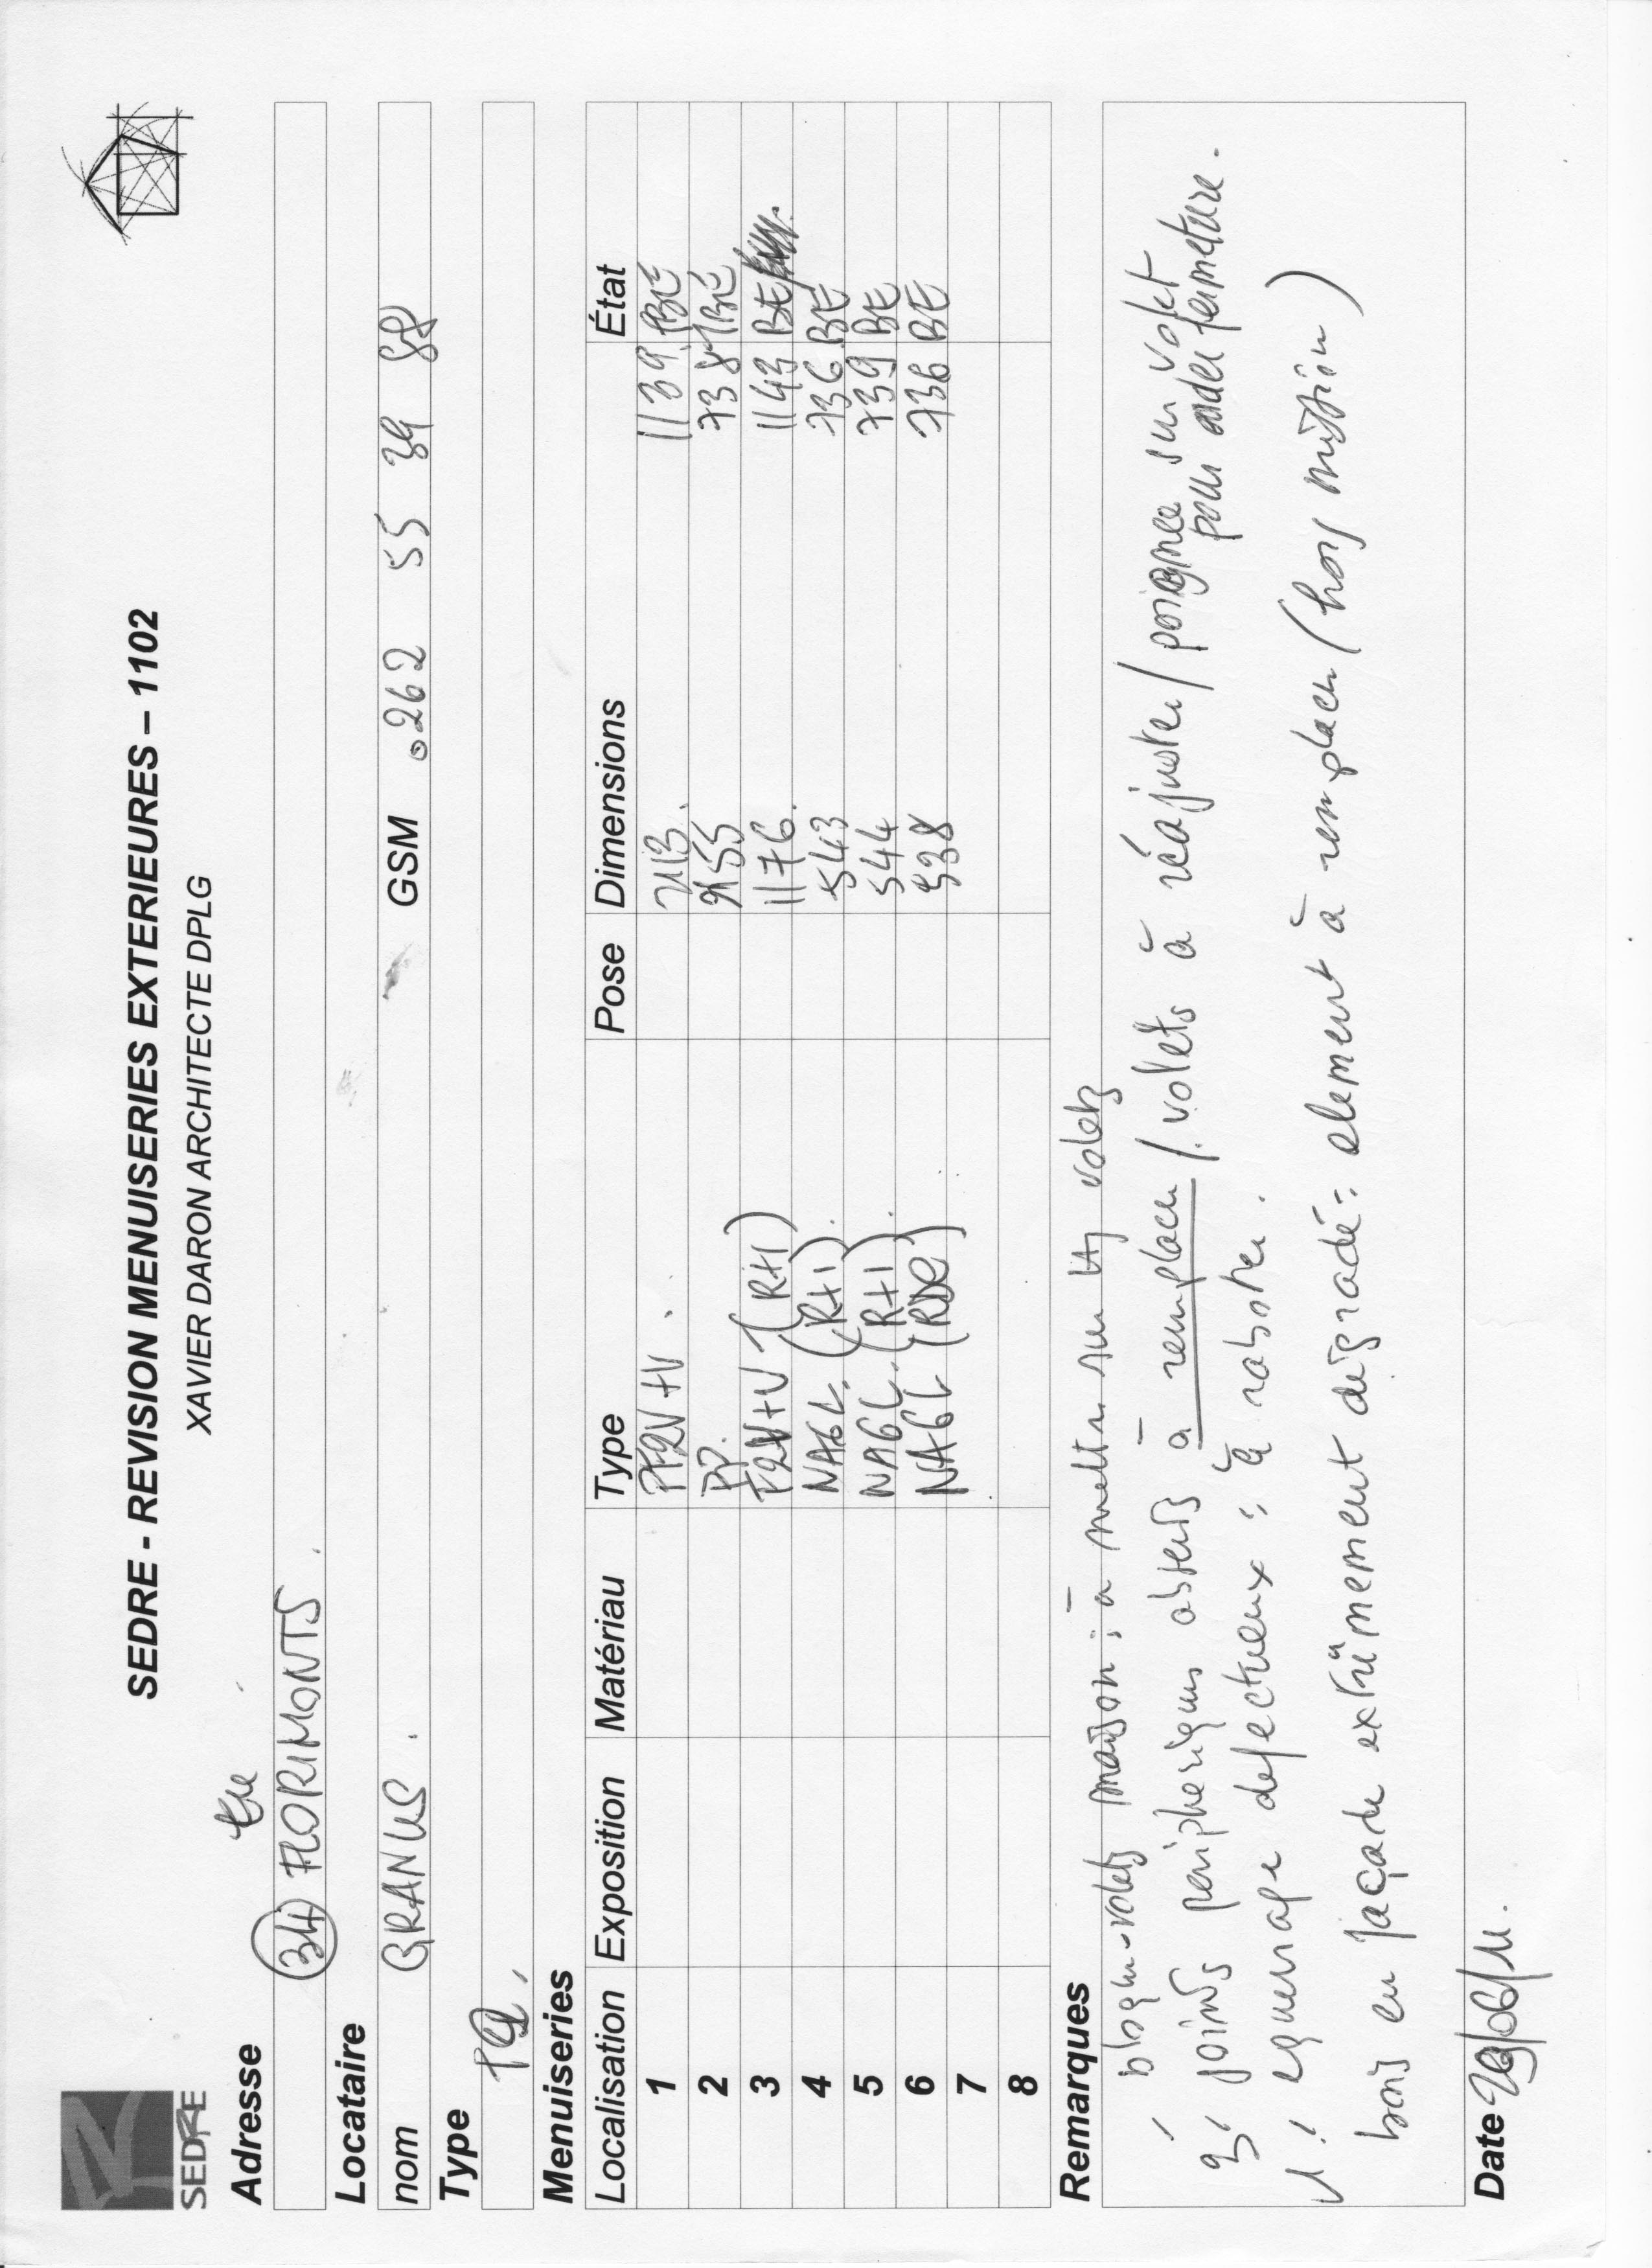 SEDRE
SEDRE - REVISION MENUISERIES EXTERIEURES – 1102
XAVIER DARON ARCHITECTE DPLG
Adresse
34 FLORIMONTS.
Locataire
nom GSM 0262 55 39 88
Type
Menuiseries
Localisation Exposition Matériau Type Pose Dimensions État
1 PF2V+V 2113 1139 TBE
2 PP. 2155 738 TBE
3 F2V+V (R+1) 1176 1143 BE
4 NA6L (R+1) 543 736 BE
5 NA6L (R+1) 544 739 BE
6 NA6L (RDC) 538 736 BE
7
8
Remarques
bloque-volets maison : à mettre sur volets
joints peripheriques absents à remplacer / volets à réajuster / poignee sur volet
pour aider fermeture.
equerrage defectueux : à raboter.
bois en façade extrêmement dégradé : element à remplacer (hors mission)
Date 29/06/11.